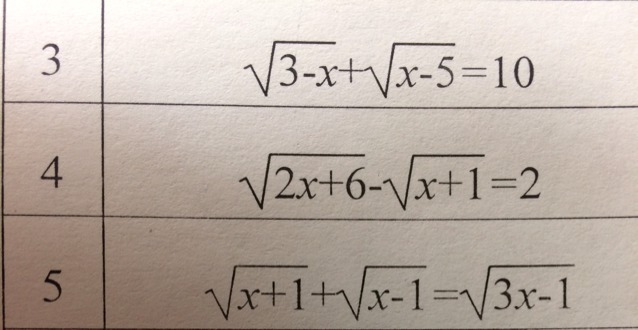 3 √3-x+√x-5=10
4 √2x+6-√x+1=2
5 √x+1+√x-1=√3x-1